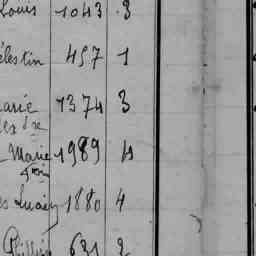 Louis 1043 3
élestin 457 1
arie 1374 3
Marie 1989 4
Lucien 1880 4
Phillip 631 2